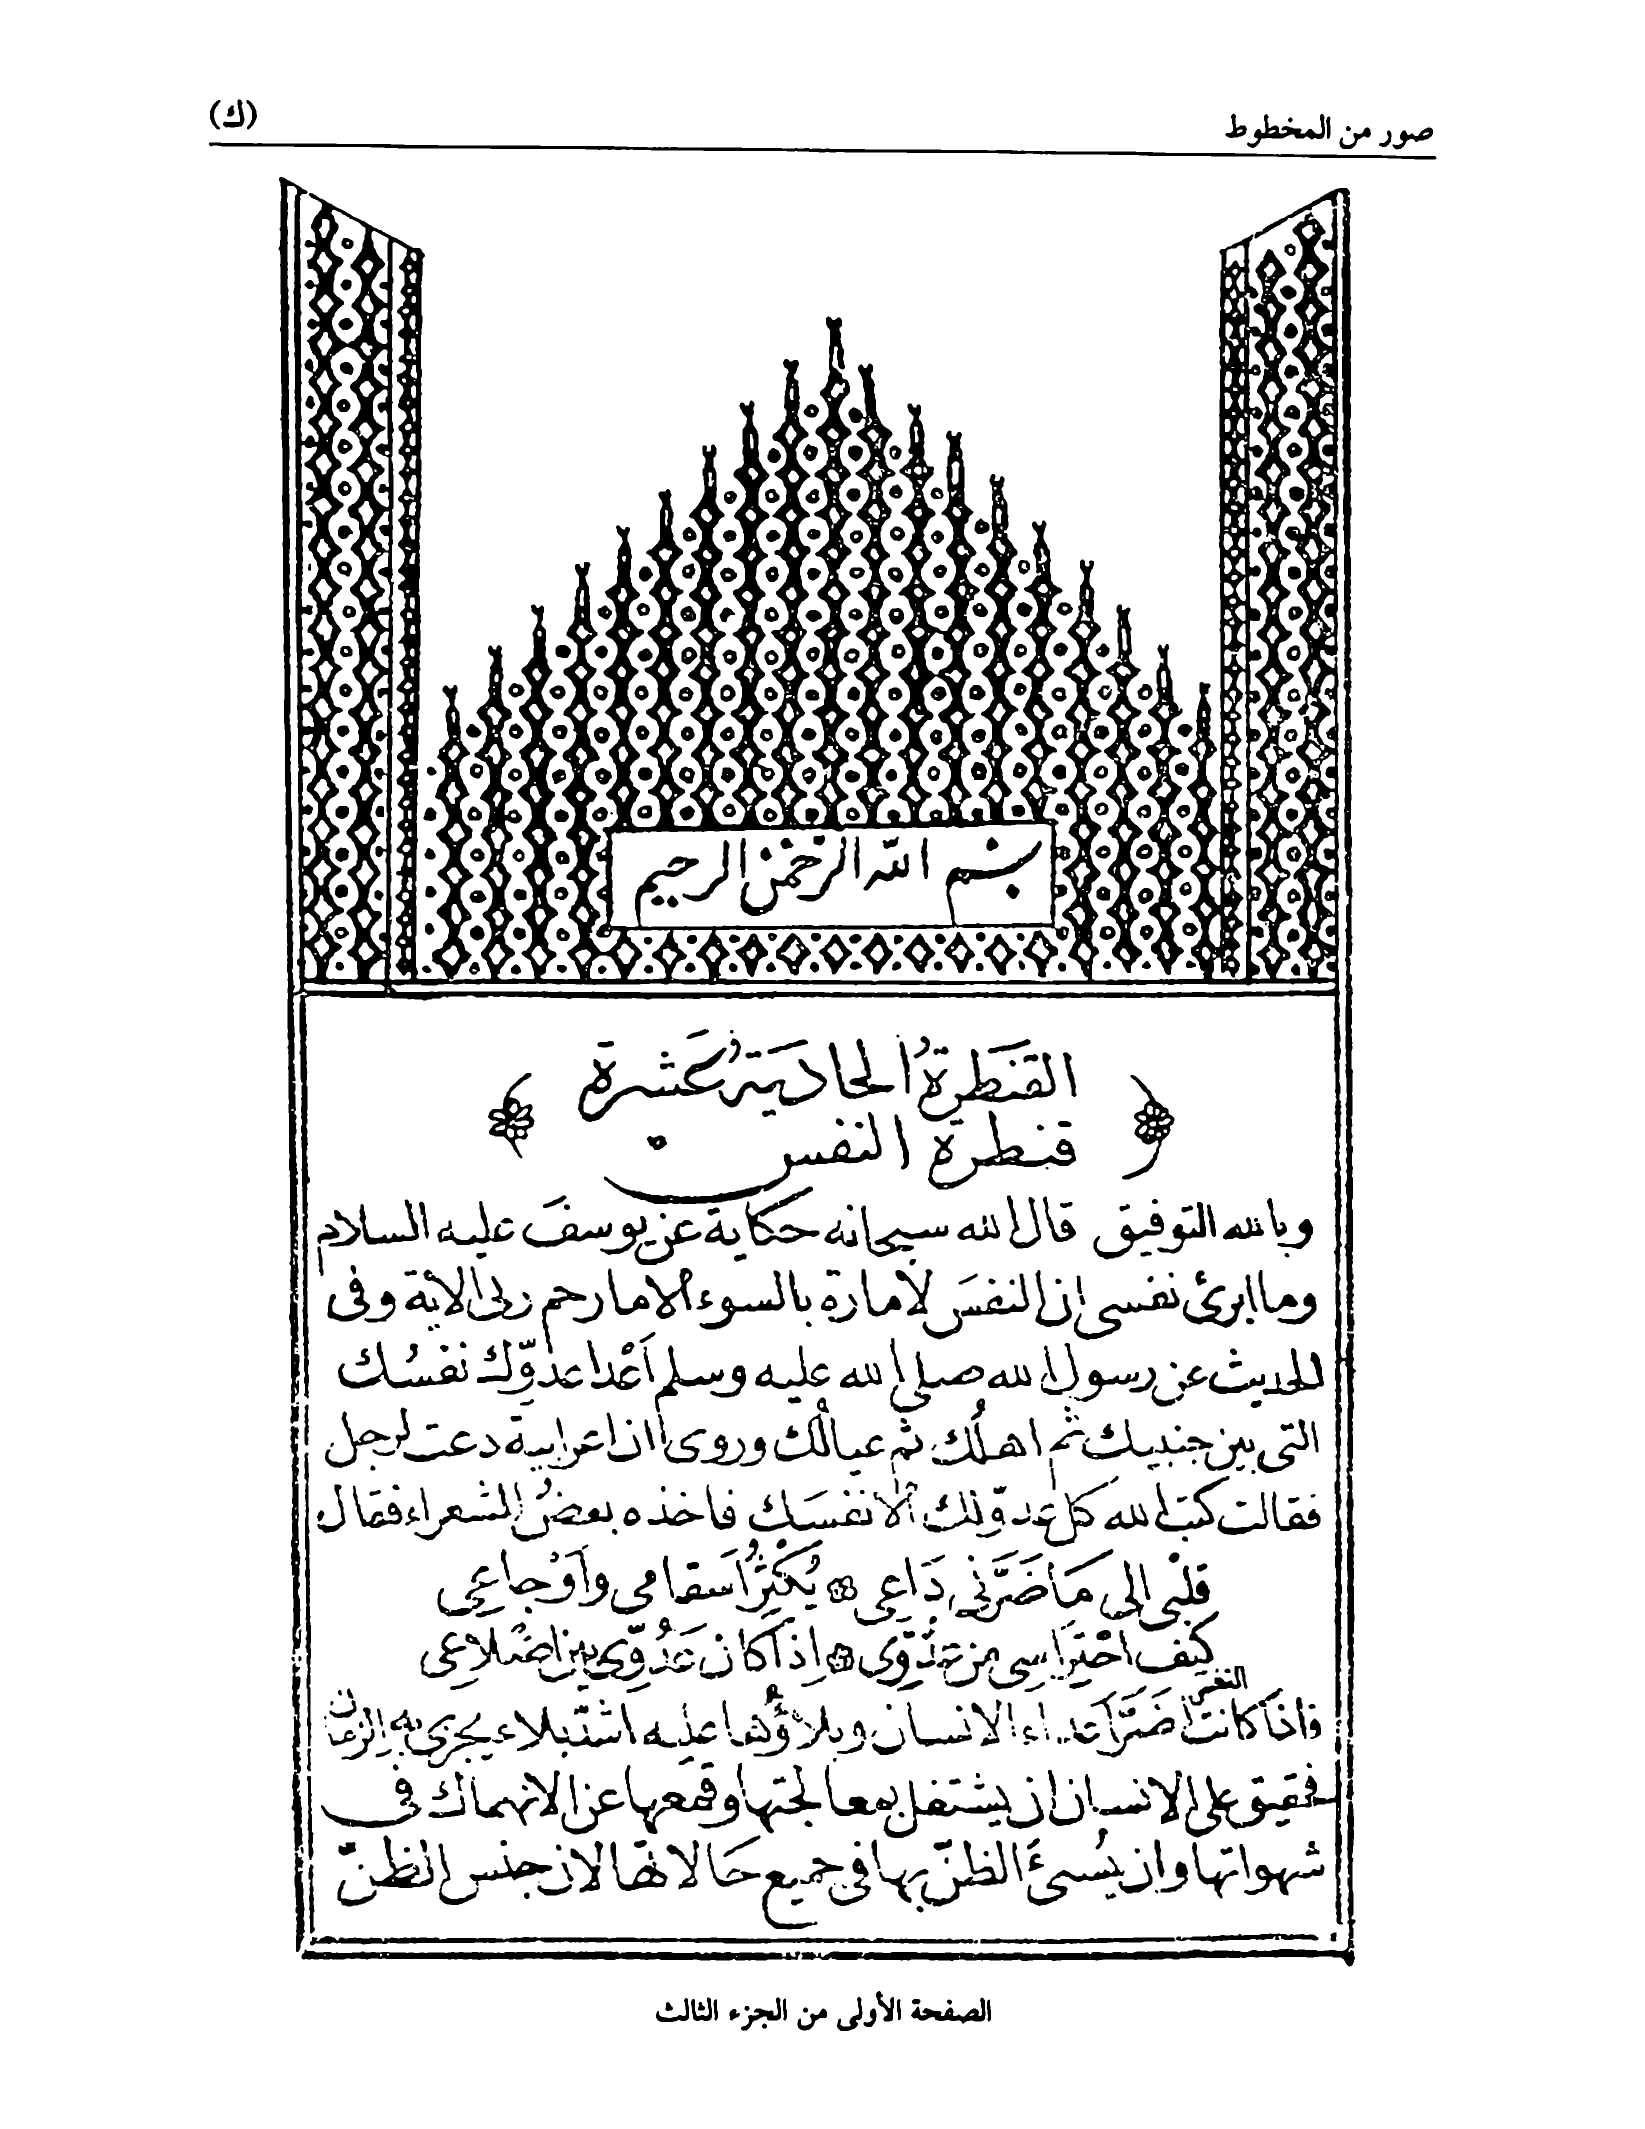 صور من المخطوط
(ك)
بسم الله الرحمن الرحيم
القنطرة الحادية عشرة
قنطرة النفس
وبالله التوفيق قال الله سبحانه حكاية عن يوسف عليه السلام
وما ابرئ نفسي ان النفس لأمارة بالسوء الا ما رحم ربي الآية وفي
الحديث عن رسول الله صلى الله عليه وسلم أعدا عدوّك نفسُك
التي بين جنبيك ثم اهلُك ثم عيالُك وروى ان اعرابية دعت لرجل
فقالت كبت الله كل عدوّ لك الّا نفسَك فاخذه بعضُ الشعراء فقال
قلبي الى ما ضَرَّني دَاعي يُكثِرُ أسقامي وأوْجاعي
كيف احْتِرَاسي من عَدُوّي إذا كان عَدُوّي بين اضْلاعي
فاذا كانت النفس أضَرّ أعداء الانسان وبلاؤُها عليه اشدّ بلاء يجري به الزمان
فحقيق على الانسان ان يشتغل بمعالجتها وقمعها عن الانهماك في
شهواتها وان يُسيءَ الظنّ بها في جميع حَالاتها لان جنس الظنّ
الصفحة الأولى من الجزء الثالث